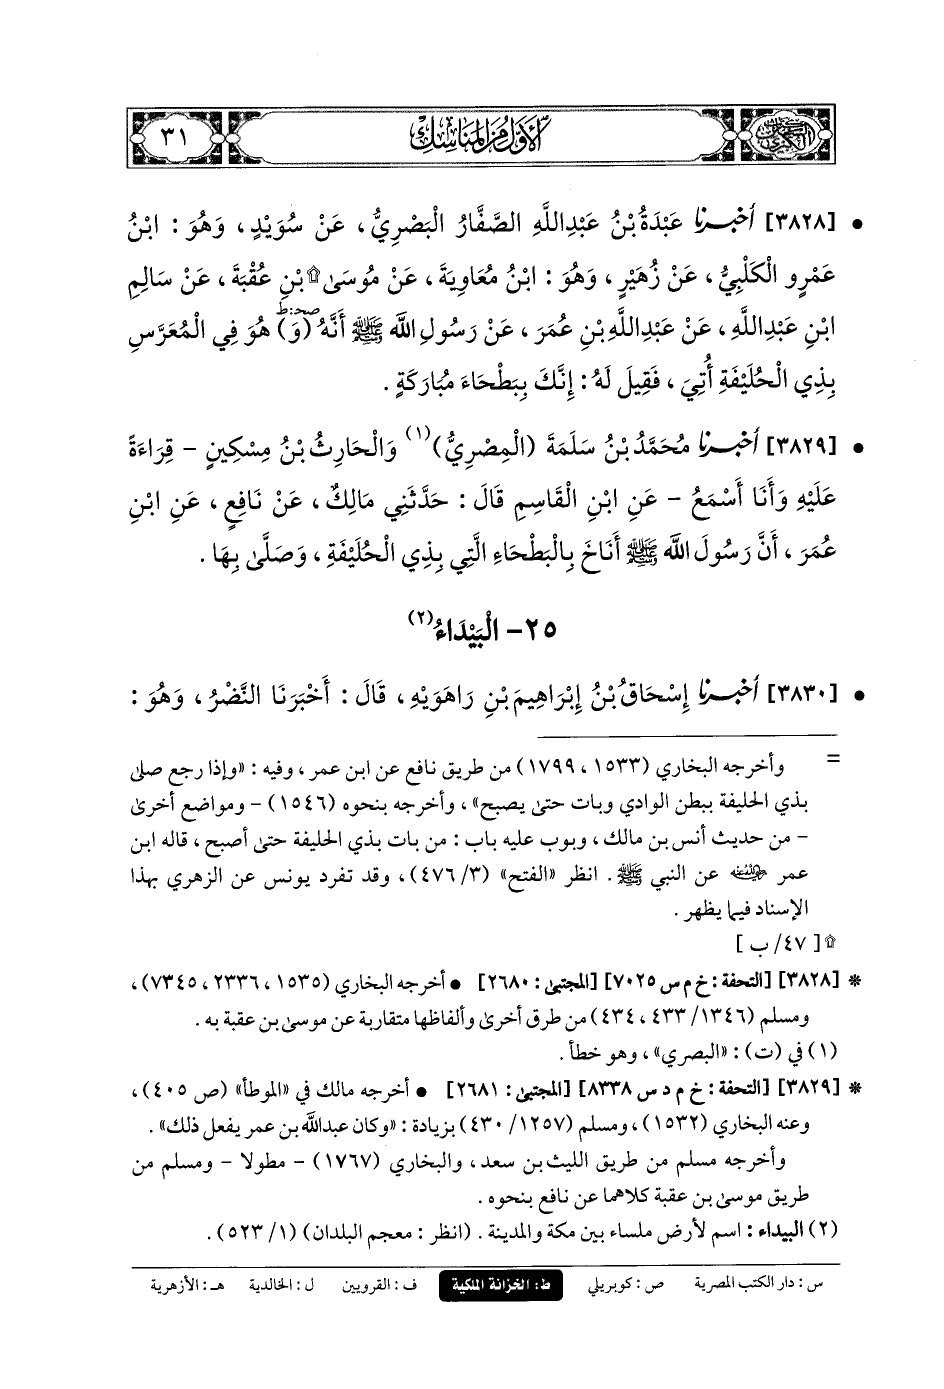 السنن الكبرى
الأول من المناسك
٣١
• [٣٨٢٨] أخبرنا عَبْدَةُ بْنُ عَبْدِاللَّهِ الصَّفَّارُ الْبَصْرِيُّ، عَنْ سُوَيْدٍ، وَهُوَ: ابْنُ
عَمْرٍو الْكَلْبِيُّ، عَنْ زُهَيْرٍ، وَهُوَ: ابْنُ مُعَاوِيَةَ، عَنْ مُوسَى۩ بْنِ عُقْبَةَ، عَنْ سَالِمِ
ابْنِ عَبْدِاللَّهِ، عَنْ عَبْدِاللَّهِ بْنِ عُمَرَ، عَنْ رَسُولِ اللَّه ﷺ أَنَّهُ (وَ)صحـ:ط هُوَ فِي الْمُعَرَّسِ
بِذِي الْحُلَيْفَةِ أُتِيَ، فَقِيلَ لَهُ: إِنَّكَ بِبَطْحَاءَ مُبَارَكَةٍ.
• [٣٨٢٩] أخبرنا مُحَمَّدُ بْنُ سَلَمَةَ (الْمِصْرِيُّ)(١) وَالْحَارِثُ بْنُ مِسْكِينٍ - قِرَاءَةً
عَلَيْهِ وَأَنَا أَسْمَعُ - عَنِ ابْنِ الْقَاسِمِ قَالَ: حَدَّثَنِي مَالِكٌ، عَنْ نَافِعٍ، عَنِ ابْنِ
عُمَرَ، أَنَّ رَسُولَ اللَّه ﷺ أَنَاخَ بِالْبَطْحَاءِ الَّتِي بِذِي الْحُلَيْفَةِ، وَصَلَّى بِهَا.
٢٥- الْبَيْدَاءُ(٢)
• [٣٨٣٠] أخبرنا إِسْحَاقُ بْنُ إِبْرَاهِيمَ بْنِ رَاهَوَيْهِ، قَالَ: أَخْبَرَنَا النَّضْرُ، وَهُوَ:
= وأخرجه البخاري (١٥٣٣، ١٧٩٩) من طريق نافع عن ابن عمر، وفيه: «وإذا رجع صلى
بذي الحليفة ببطن الوادي وبات حتى يصبح»، وأخرجه بنحوه (١٥٤٦) - ومواضع أخرى
- من حديث أنس بن مالك، وبوب عليه باب: من بات بذي الحليفة حتى أصبح، قاله ابن
عمر رضي الله عنه عن النبي ﷺ. انظر «الفتح» (٤٧٦/٣)، وقد تفرد يونس عن الزهري بهذا
الإسناد فيما يظهر.
۩ [٤٧/ ب]
* [٣٨٢٨] [التحفة: خ م س ٧٠٢٥] [المجتبى: ٢٦٨٠] • أخرجه البخاري (١٥٣٥، ٢٣٣٦، ٧٣٤٥)،
ومسلم (١٣٤٦/ ٤٣٣، ٤٣٤) من طرق أخرى وألفاظها متقاربة عن موسى بن عقبة به.
(١) في (ت): «البصري»، وهو خطأ.
* [٣٨٢٩] [التحفة: خ م د س ٨٣٣٨] [المجتبى: ٢٦٨١] • أخرجه مالك في «الموطأ» (ص ٤٠٥)،
وعنه البخاري (١٥٣٢)، ومسلم (١٢٥٧/ ٤٣٠) بزيادة: «وكان عبدالله بن عمر يفعل ذلك».
وأخرجه مسلم من طريق الليث بن سعد، والبخاري (١٧٦٧) - مطولا - ومسلم من
طريق موسى بن عقبة كلاهما عن نافع بنحوه.
(٢) البيداء: اسم لأرض ملساء بين مكة والمدينة. (انظر: معجم البلدان) (١/ ٥٢٣).
س: دار الكتب المصرية ص: كوبريلي ط: الخزانة الملكية ف: القرويين ل: الخالدية هـ: الأزهرية